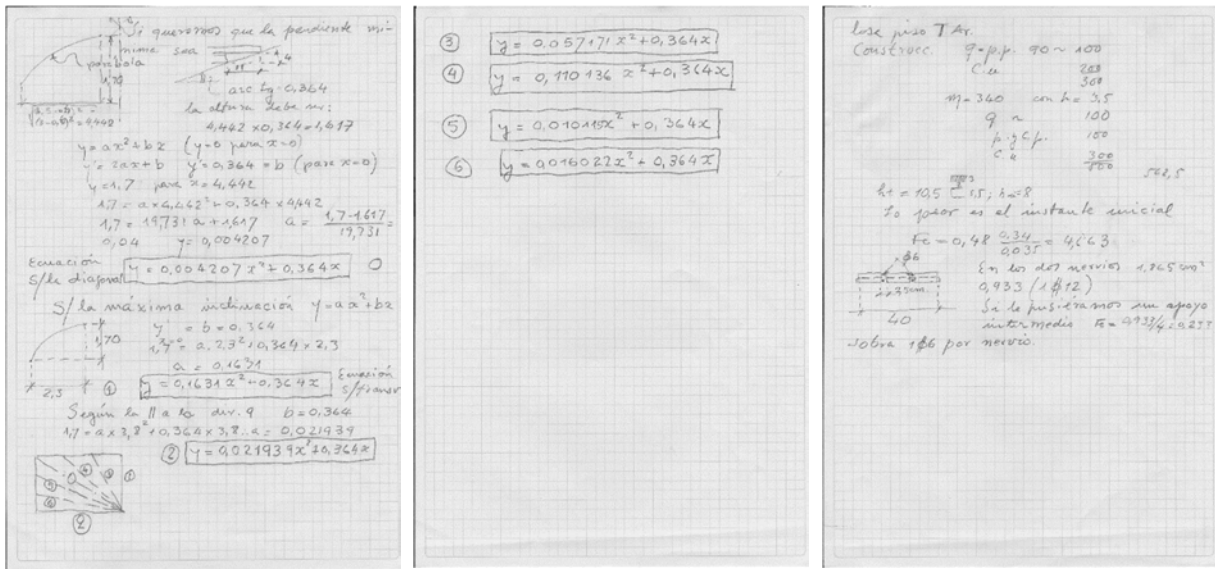 Si queremos que la pendiente mí-
nima sea
parábola
1,70
arc tg 0,364
la altura debe ser:
4,442 x 0,364 = 1,617
y = ax² + bx (y=0 para x=0)
y' = 2ax + b y' = 0,364 = b (para x=0)
y = 1,7 para x = 4,442
1,7 = a x 4,442² + 0,364 x 4,442
1,7 = 19,731 a + 1,617 a = 1,7-1,617 / 19,731 =
0,04 y = 0,004207
Ecuación
S/la diagonal y = 0,004207 x² + 0,364x 0
S/ la máxima inclinación y = ax² + bx
y' = b = 0,364
1,70
1,7 = a. 2,3² + 0,364 x 2,3
a = 0,1631
2,3 1 y = 0,1631 x² + 0,364x Ecuación
S/transv
Según la || a la dir. 9 b = 0,364
1,7 = a x 3,8² + 0,364 x 3,8 .. a = 0,021939
2 y = 0,021939x² + 0,364x
2
3 y = 0,057171 x² + 0,364x
4 y = 0,110136 x² + 0,364x
5 y = 0,010115x² + 0,364x
6 y = 0,016022x² + 0,364x
losa piso T Ar.
Construcc. q = p.p. 90 ~ 100
c.u 200
300
m = 340 con h = 3,5
q ~ 100
p. y c.p. 100
c.u 300
500
548,5
ht = 10,5 1,5; h = 8
Lo peor es el instante inicial
Fe = 0,48 0,34 / 0,035 = 4,663
ϕ6
En los dos nervios 1,865 cm²
0,933 (1ϕ12)
40
Si le pusiéramos un apoyo
intermedio Fe = 0,933/4 = 0,233
sobra 1ϕ6 por nervio.